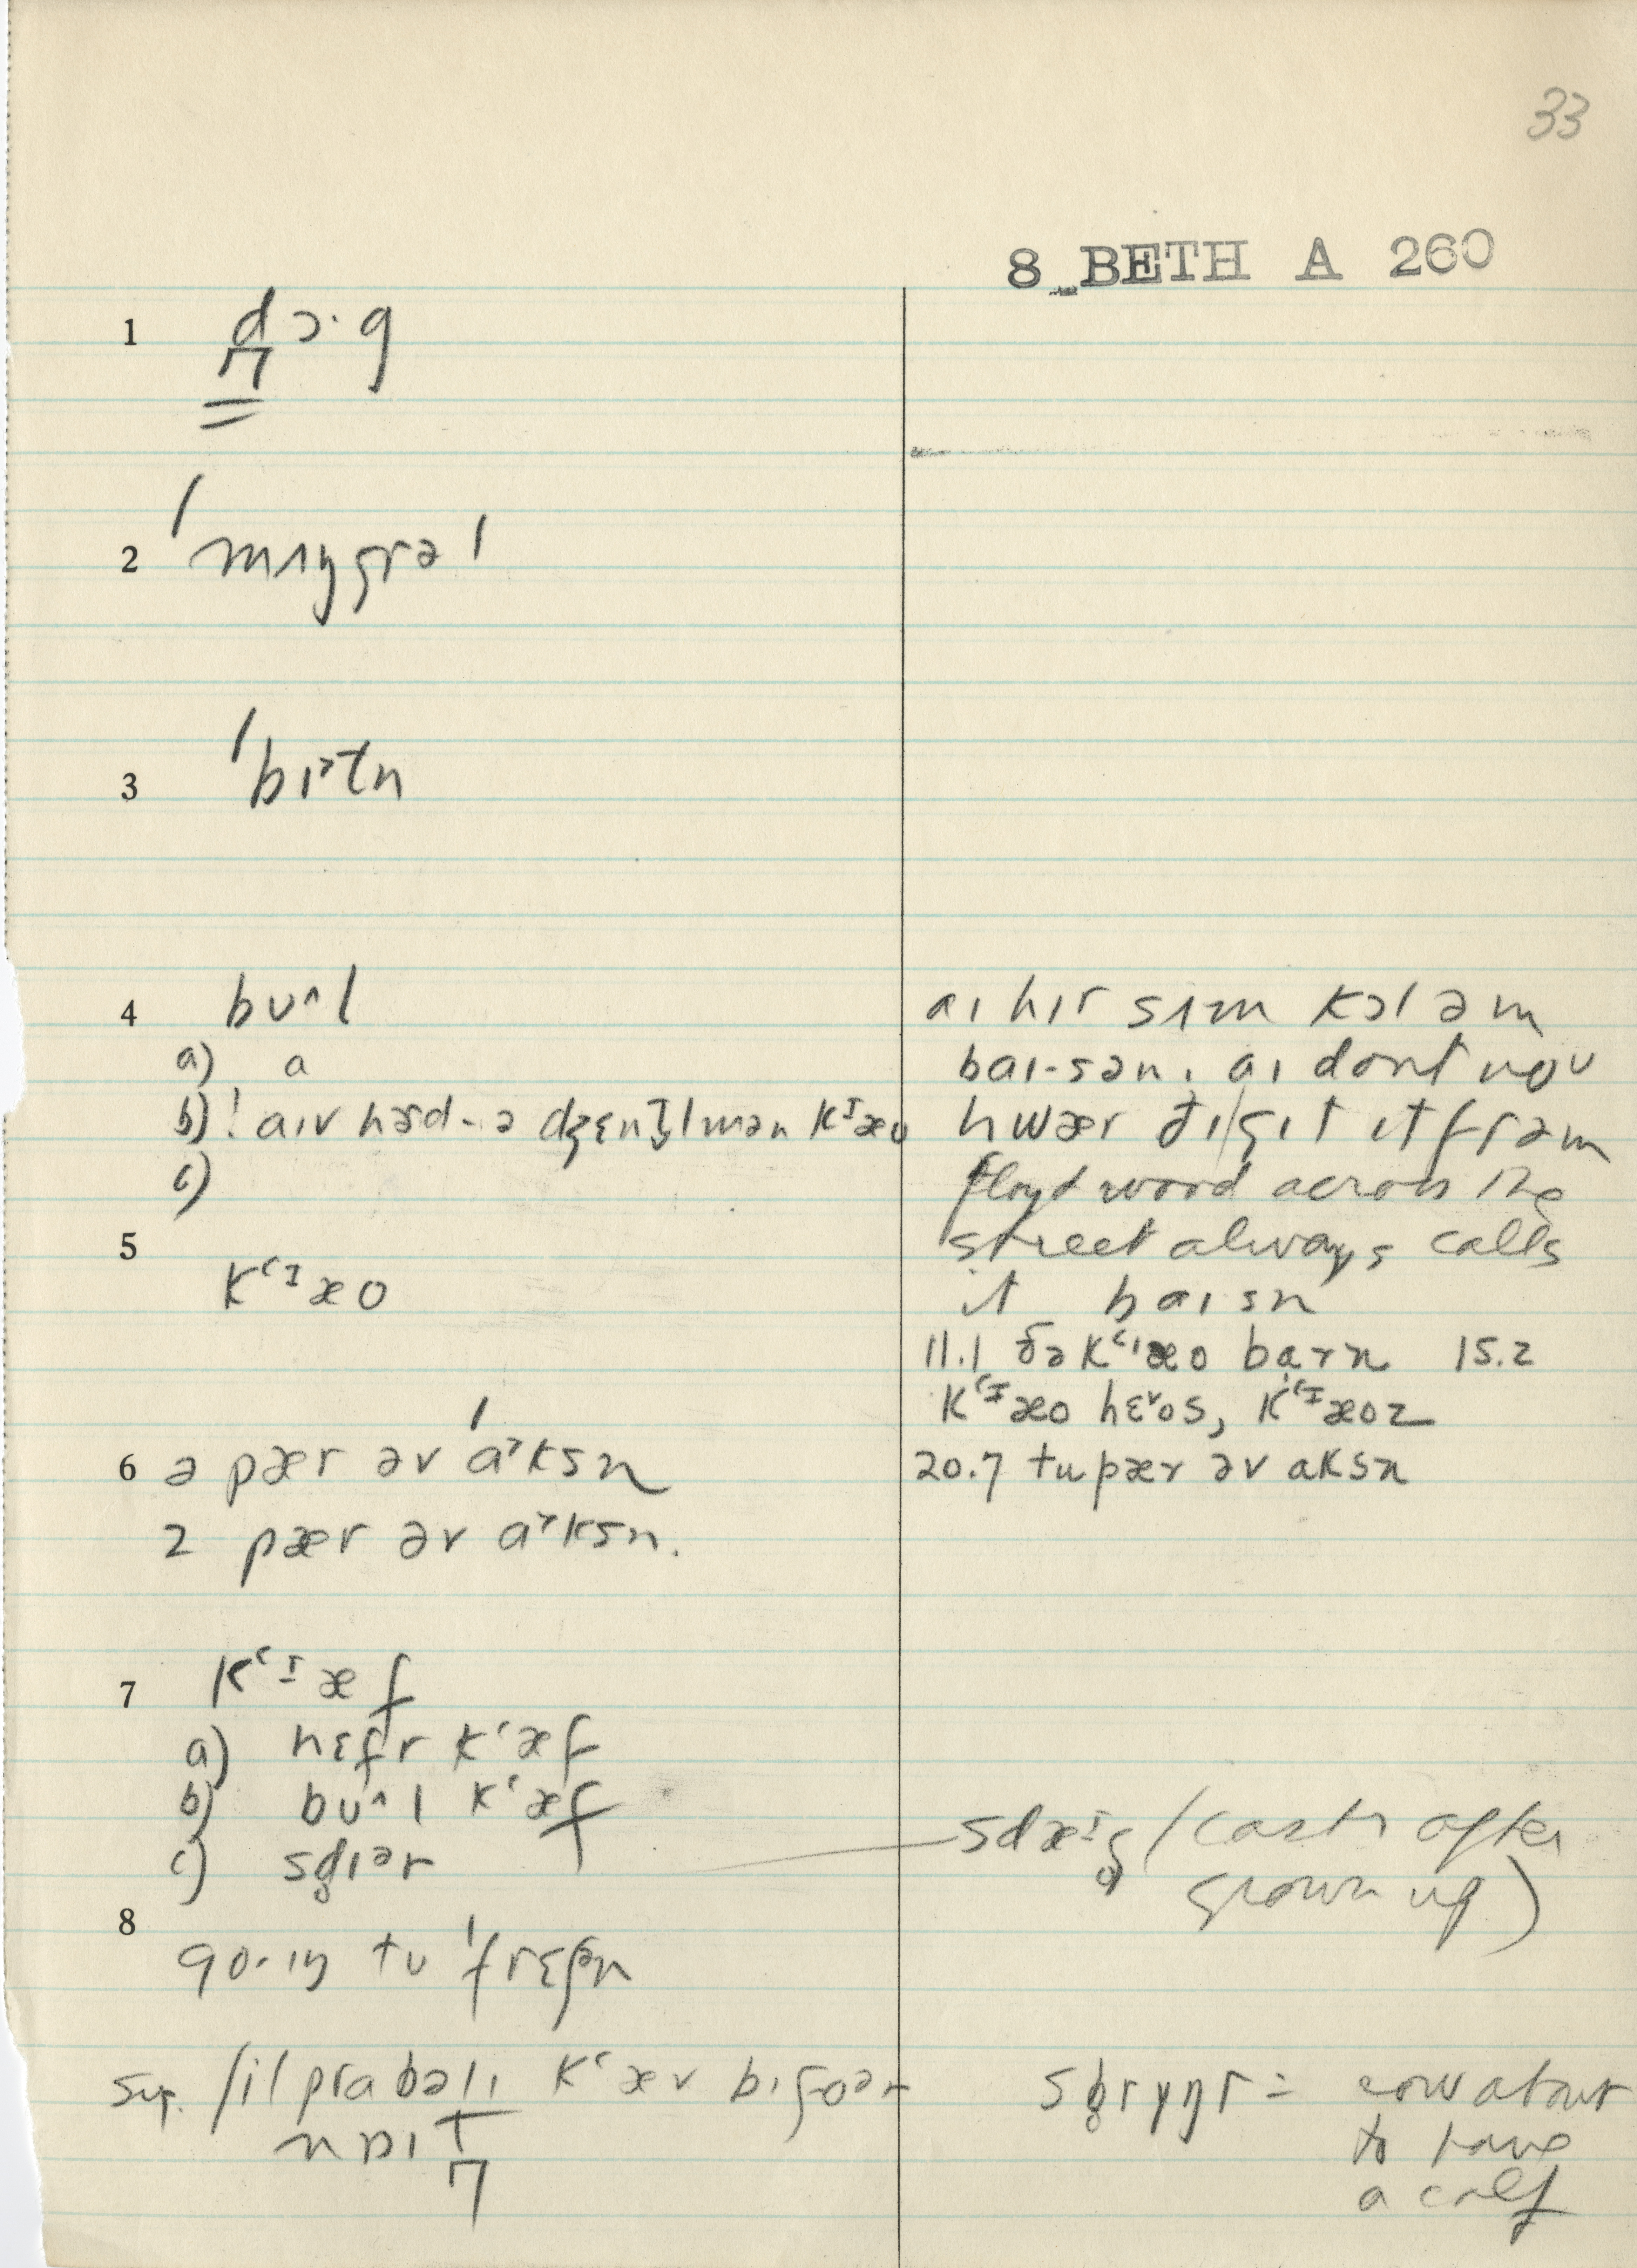 33
8 BETH A 260
1 dɔ·g
2 ˈmʌŋgrəl
3 ˈbɪ˃tn
4 bʊ^l
a) a
b) ! aɪv həd-ə dʒɛntlmən kᶦæo
c)
5 kʻᶦæo
6 ə pær əv ˈa˃ksn
2 pær əv a˃ksn.
7 kʻᶦæf
a) hɛfr kʻæf
b) bʊ^l kʻæf
c) sd̥ɪər
8 go·ɪŋ tʊ ˈfrɛʃn
Sup. /il prabəlɪ kʻæv bɪfoər
naɪt
aɪ hɪr sʌm kɔl əm
baɪ-sən. aɪ dont noʊ
hwær ðɪ/gɪt ɪt frəm
floyd wood across the
street always calls
it baɪsn
11.1 ðə kʻᶦæo barn 15.2
kʻᶦæo hɛ˅os, kʻᶦæoz
20.7 tu pær əv aksn
sdæᶦg̥ (castr after
grown up)
sb̥rɪŋr = cow about
to have
a calf